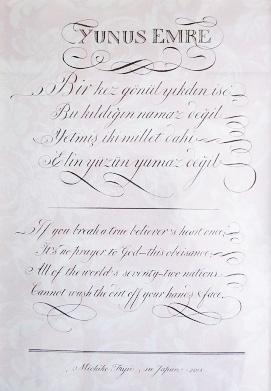 YUNUS EMRE
Bir kez gönül yıkdın ise
Bu kıldığın namaz değil
Yetmiş iki millet dahi
Elin yüzün yumaz değil
If you break a true believer's heart once,
It's no prayer to God—this obeisance,
All of the world's seventy-two nations
Cannot wash the dirt off your hands & face.
in Japan